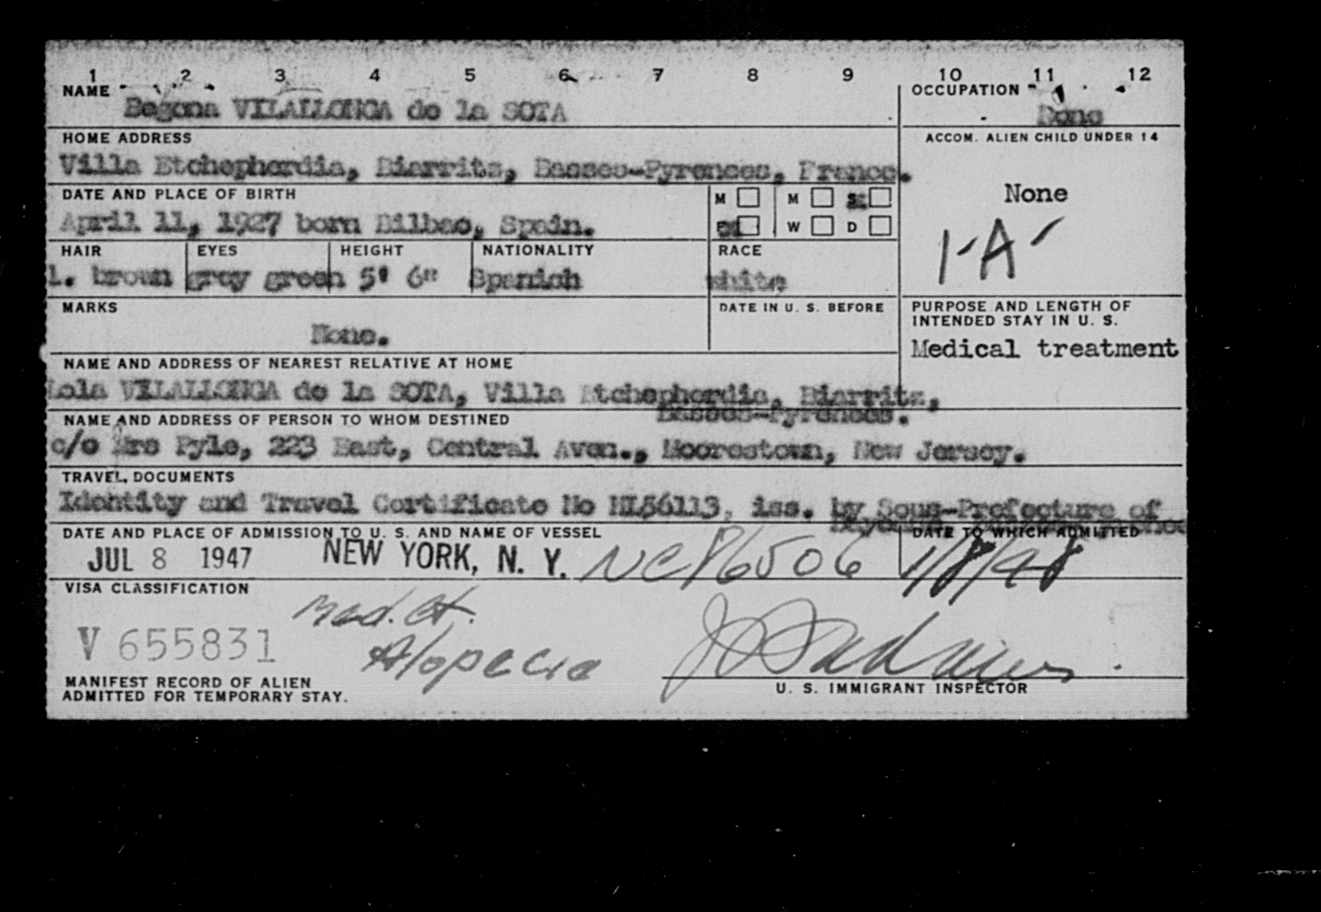 1 2 3 4 5 6 7 8 9 10 11 12
NAME
OCCUPATION
Begona VILALLONGA de la SOTA
None
HOME ADDRESS
ACCOM. ALIEN CHILD UNDER 14
Villa Etchephordia, Biarritz, Basses-Pyrenees, France.
None
DATE AND PLACE OF BIRTH
M M S
April 11, 1927 born Bilbao, Spain.
W D
1-A-
HAIR EYES HEIGHT NATIONALITY RACE
l. brown grey green 5' 6" Spanish white
MARKS
DATE IN U. S. BEFORE
PURPOSE AND LENGTH OF
INTENDED STAY IN U. S.
None.
Medical treatment
NAME AND ADDRESS OF NEAREST RELATIVE AT HOME
Lola VILALLONGA de la SOTA, Villa Etchephordia, Biarritz,
Basses-Pyrenees.
NAME AND ADDRESS OF PERSON TO WHOM DESTINED
c/o Mrs Pyle, 223 East, Central Aven., Moorestown, New Jersey.
TRAVEL DOCUMENTS
Identity and Travel Certificate No HI56113, iss. by Sous-Prefecture of
DATE AND PLACE OF ADMISSION TO U. S. AND NAME OF VESSEL
DATE TO WHICH ADMITTED
JUL 8 1947 NEW YORK, N. Y. NC86506 1/8/48
VISA CLASSIFICATION
Med. ct.
V 655831
Alopecia
MANIFEST RECORD OF ALIEN
ADMITTED FOR TEMPORARY STAY.
U. S. IMMIGRANT INSPECTOR